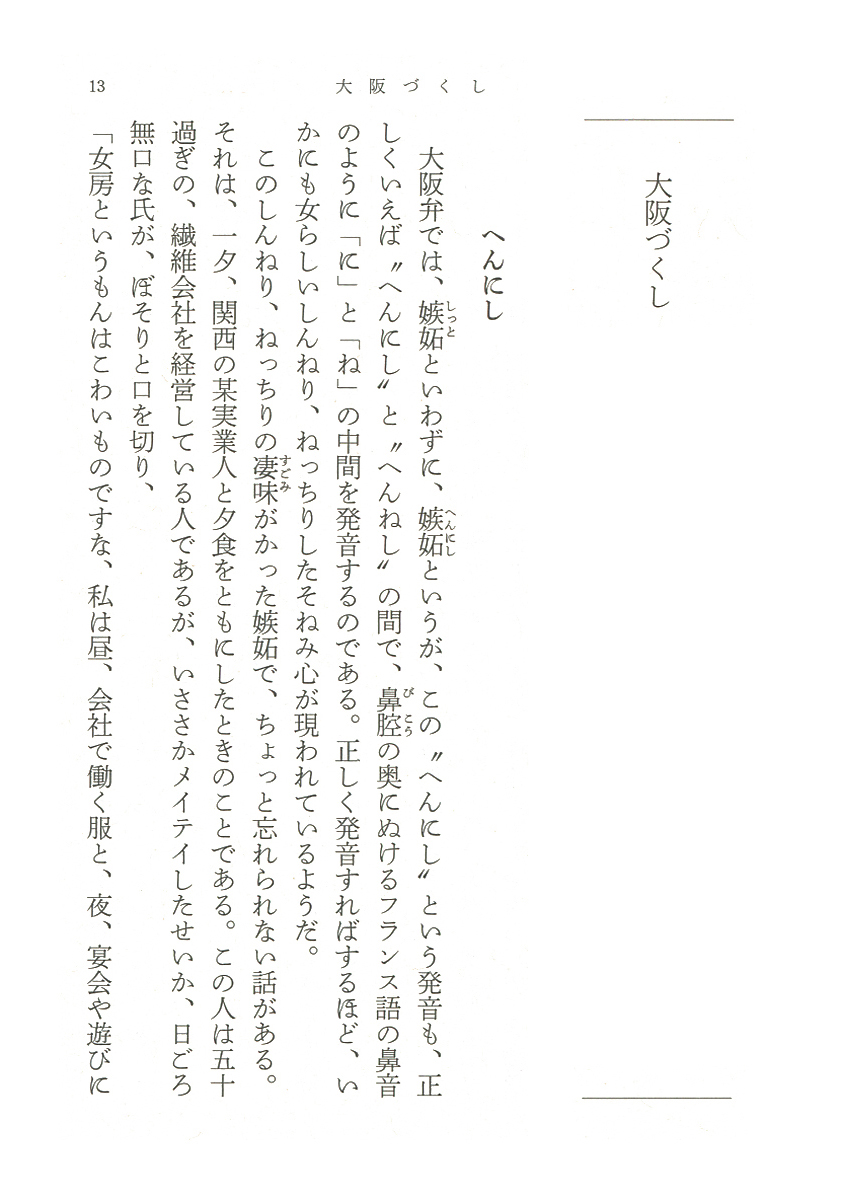 13
大阪づくし
大阪づくし
へんにし
大阪弁では、嫉妬といわずに、嫉妬というが、この〝へんにし〟という発音も、正
しっと
へんにし
しくいえば〝へんにし〟と〝へんねし〟の間で、鼻腔の奥にぬけるフランス語の鼻音
びこう
のように「に」と「ね」の中間を発音するのである。正しく発音すればするほど、い
かにも女らしいしんねり、ねっちりしたそねみ心が現われているようだ。
このしんねり、ねっちりの凄味がかった嫉妬で、ちょっと忘れられない話がある。
すごみ
それは、一夕、関西の某実業人と夕食をともにしたときのことである。この人は五十
過ぎの、繊維会社を経営している人であるが、いささかメイテイしたせいか、日ごろ
無口な氏が、ぼそりと口を切り、
「女房というもんはこわいものですな、私は昼、会社で働く服と、夜、宴会や遊びに